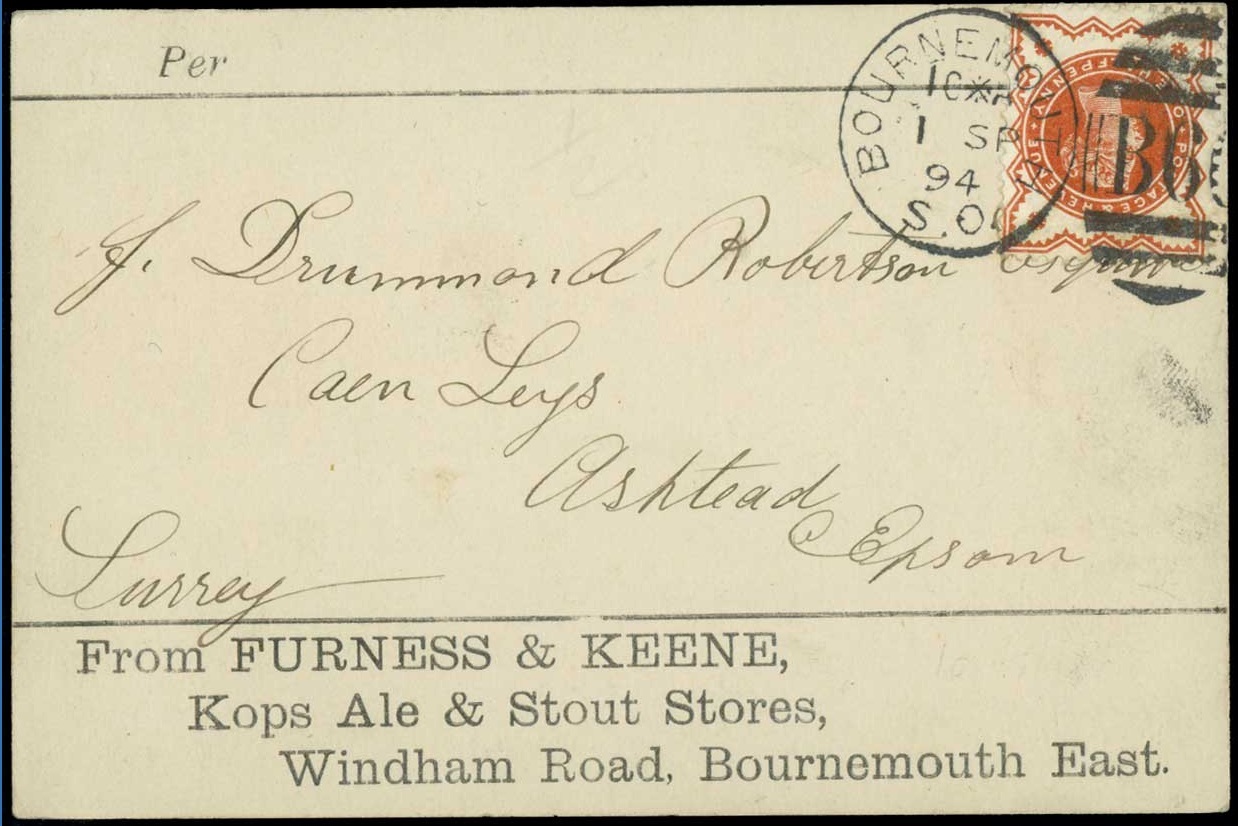 Per
BOURNEMOUTH
1 SP
94
S.O.
B6
POSTAGE & REVENUE
HALFPENNY
J. Drummond Robertson esquire
Caen Leys
Ashtead
Epsom
Surrey
From FURNESS & KEENE,
Kops Ale & Stout Stores,
Windham Road, Bournemouth East.